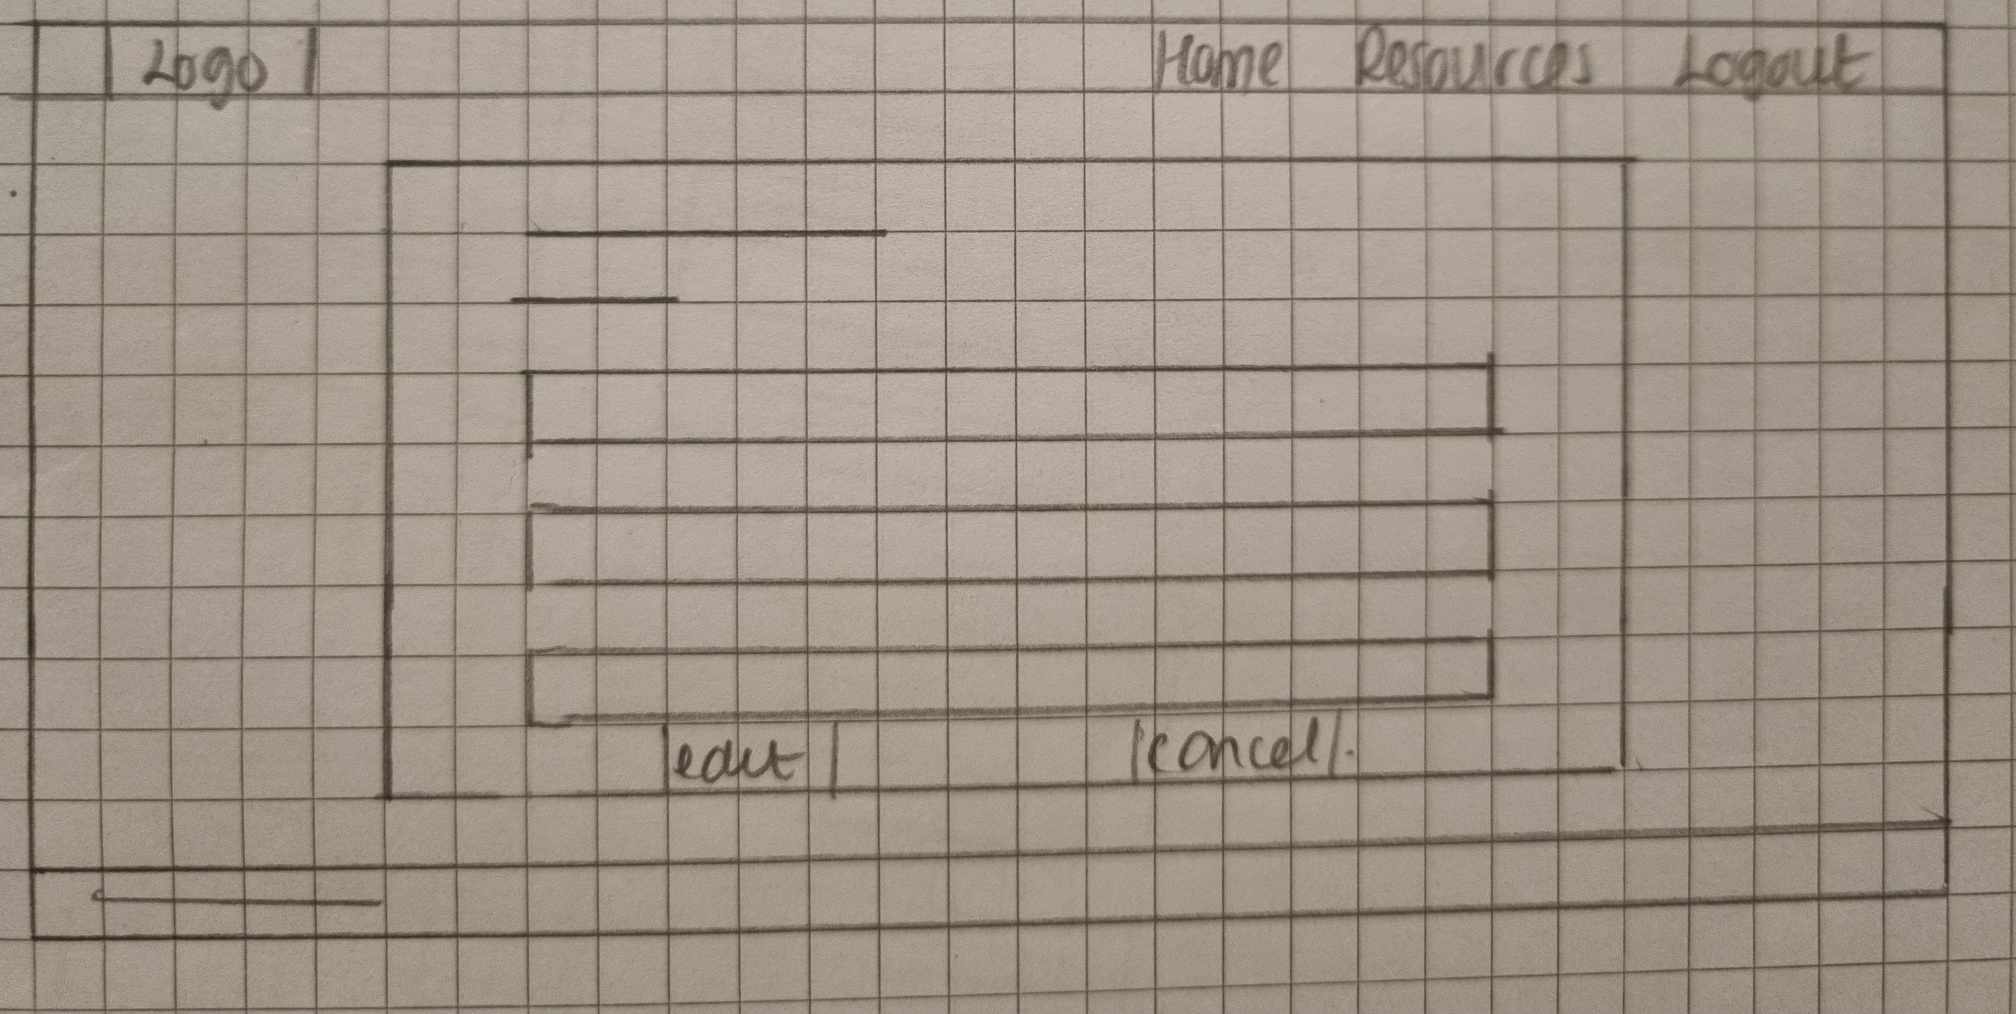 Logo Home Resources Logout
edit cancel